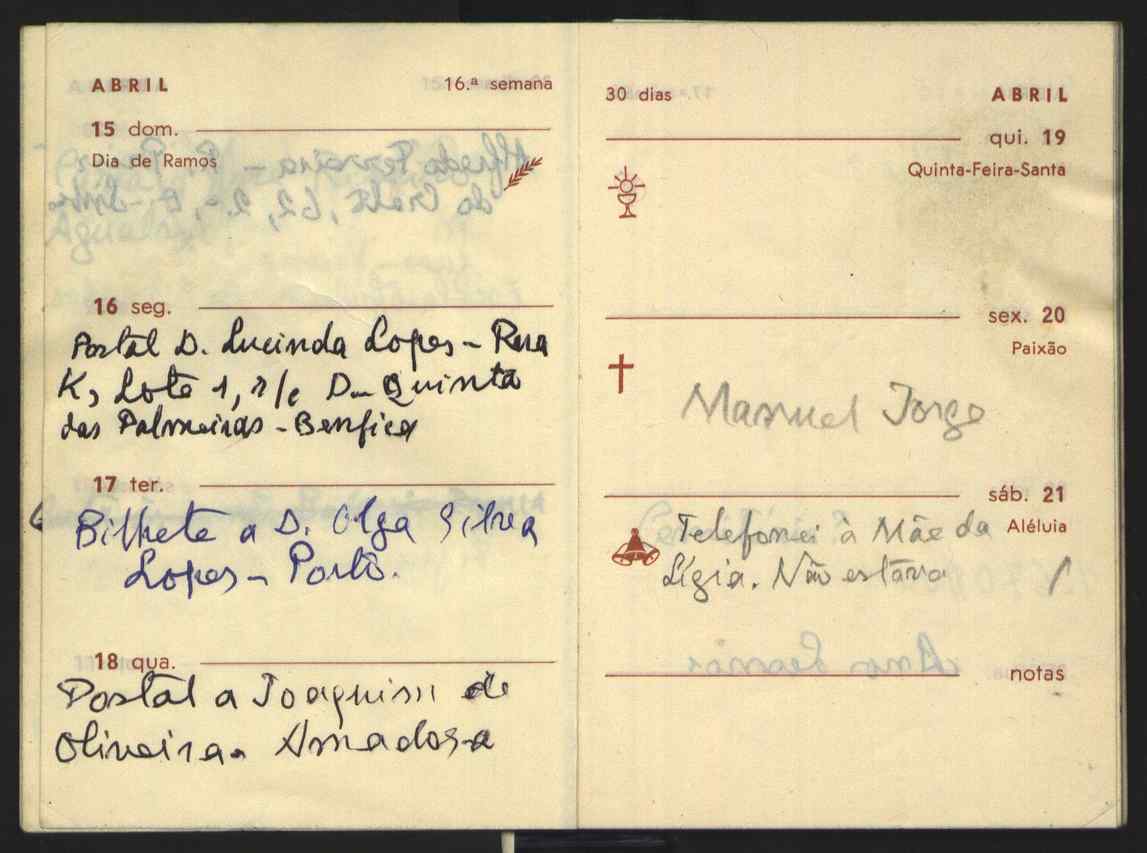 ABRIL 16.ª semana
15 dom.
Dia de Ramos
16 seg.
Postal D. Lucinda Lopes – Rua
K, Lote 1, r/c D– Quinta
das Palmeiras – Benfica
17 ter.
Bilhete a D. Olga Silva
Lopes – Porto.
18 qua.
Postal a Joaquim de
Oliveira. Amadora
30 dias ABRIL
qui. 19
Quinta-Feira-Santa
sex. 20
Paixão
Manuel Jorge
sáb. 21
Aléluia
Telefonei à Mãe da
Lígia. Não estava
notas